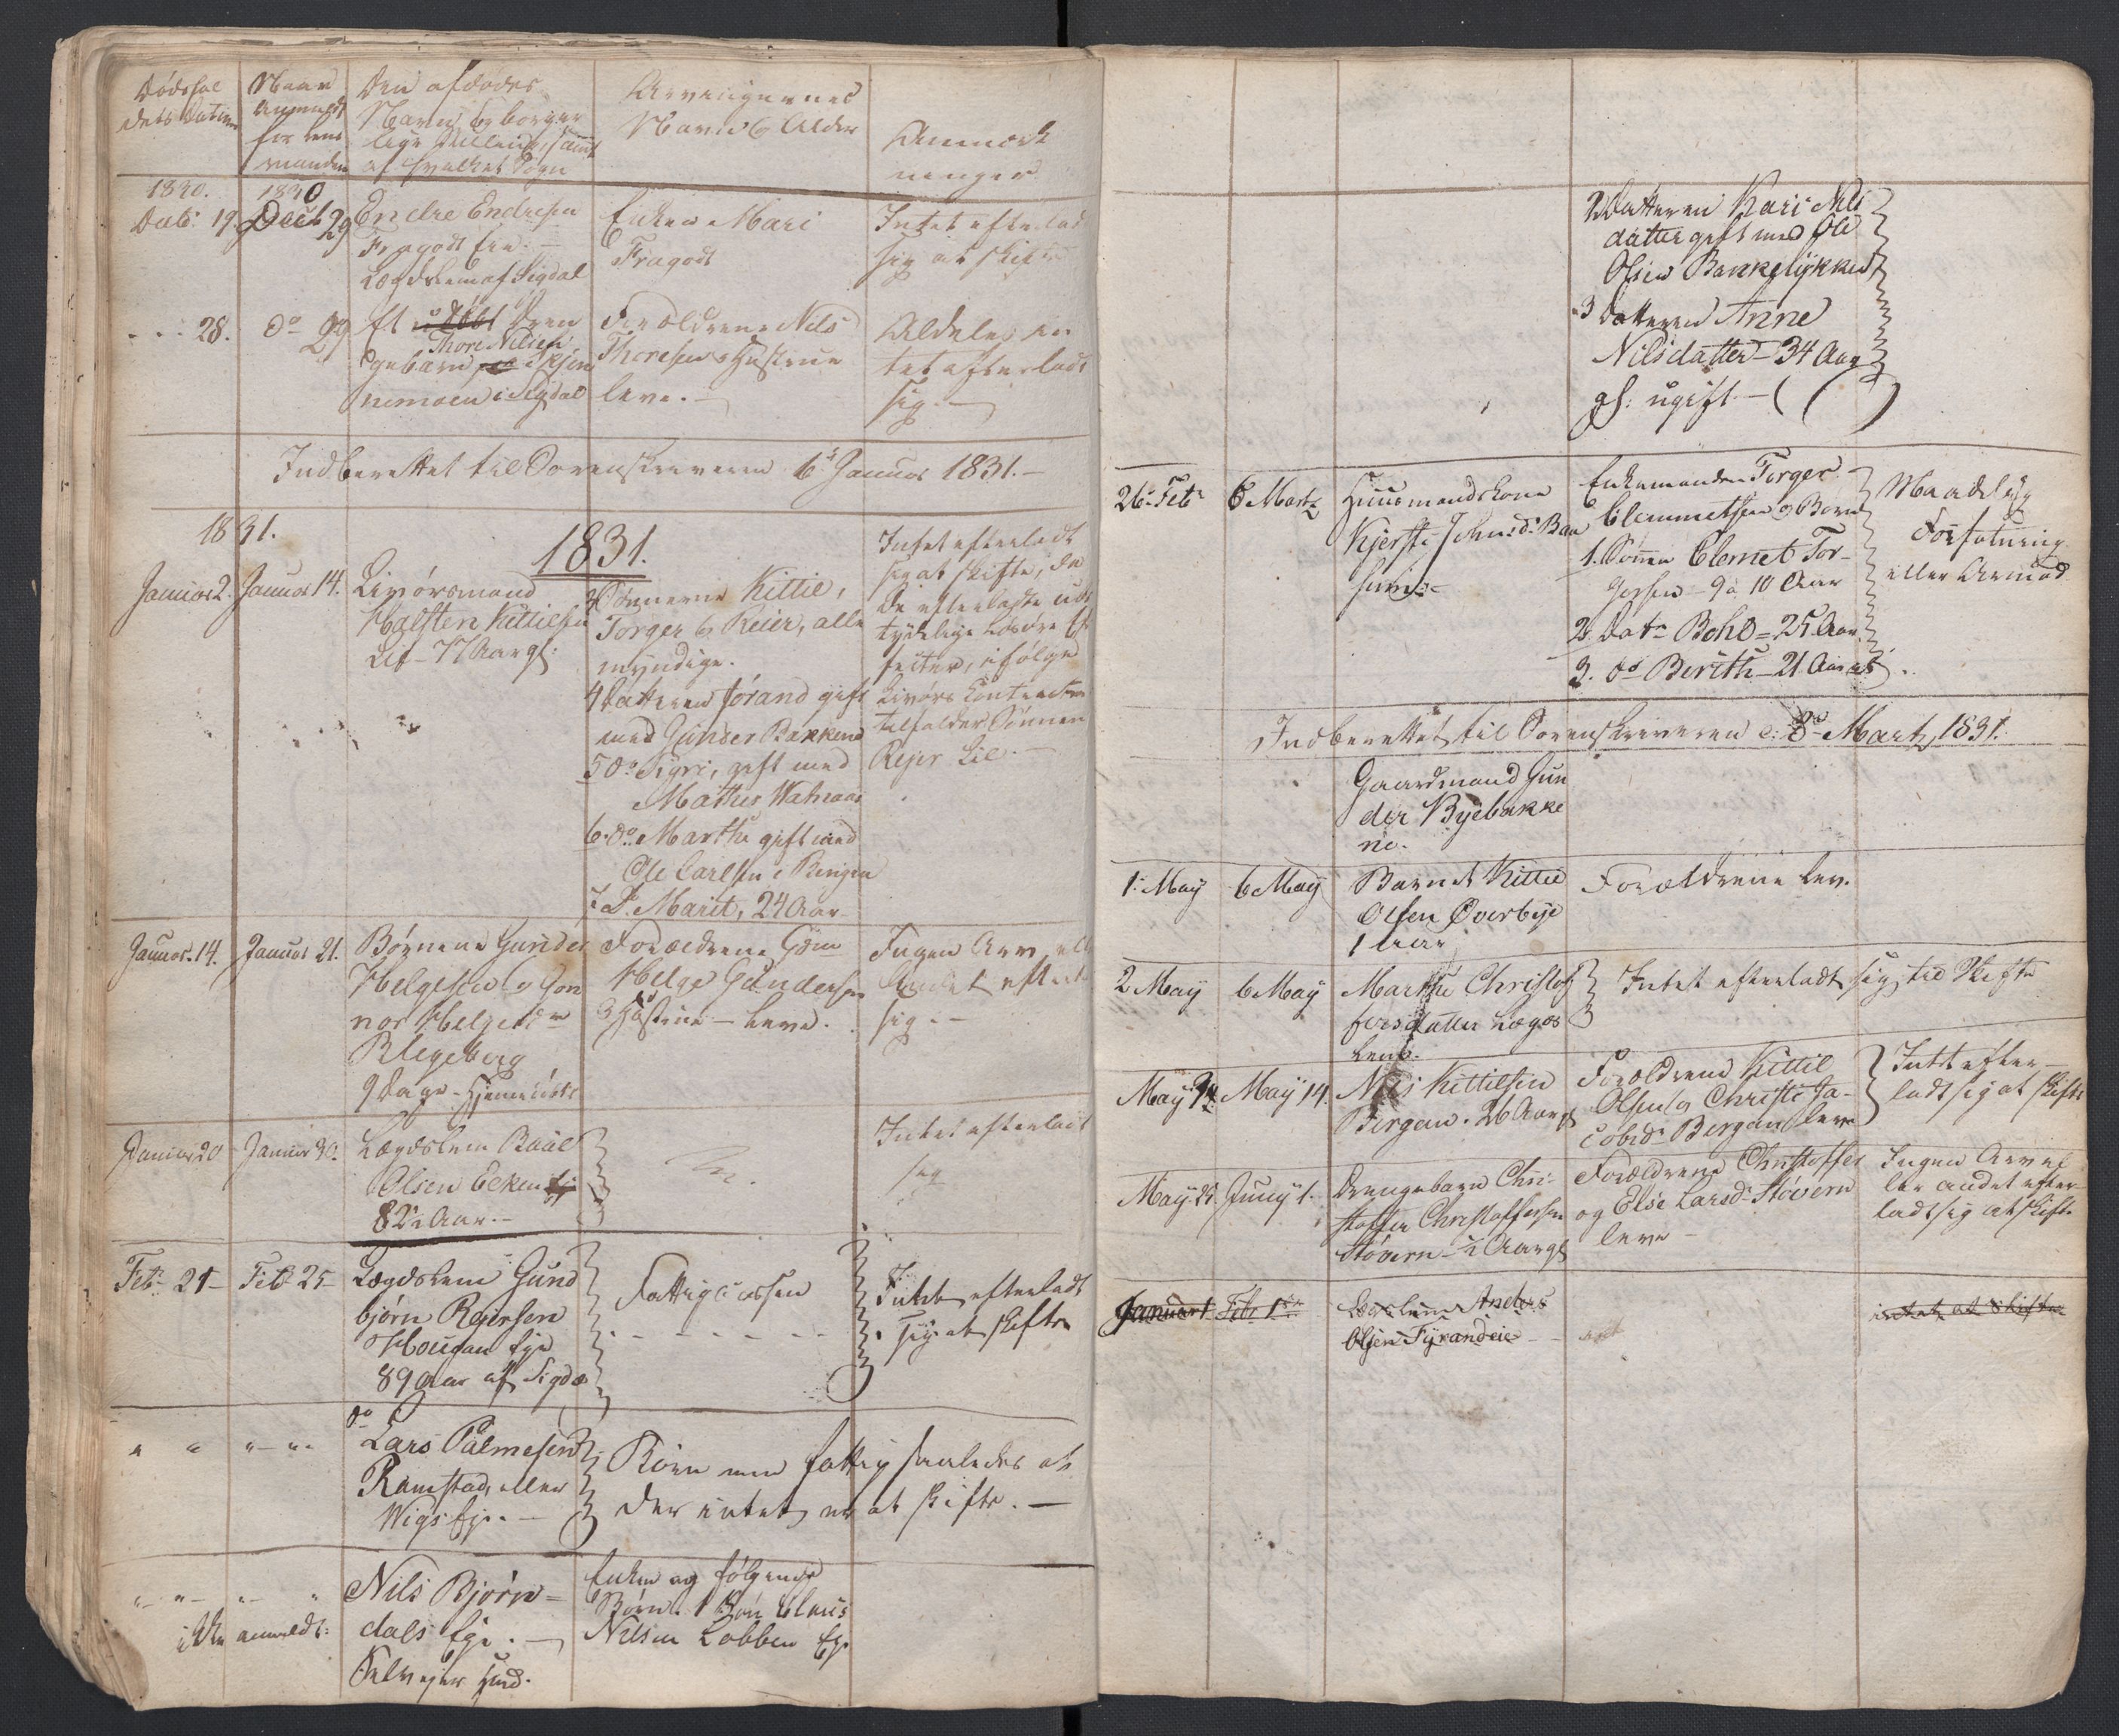 Dødsfal
dets Datum
Naar
anmeldt
for Lens
manden
Den afdødes
Navn og borger
lige Stilling, samt
af hvilket Sogn
Arvingernes
Navn og Alder
Anmærk
ninger
1830.
1830
Decbr 19.
Decbr 29
Endre Endresen
Fragodt Eie. —
Lægdslem af Sigdal
Enken Mari
Fragodt
Intet efterladt
sig at skifte
28.
do 29
Et udøbt Dren
Thore Nilsen
gebarn Skjen
nemoen i Sigdal
Forældrene Nils
Thoresen Hustrue
leve. —
Aldeles in
tet efterladt
sig. —
Indberettet til Sorenskriveren 6te Januar 1831. —
1831.
1831.
Januar 2.
Januar 14.
Livørsmand
Halsten Kittilsen
Lie - 77 Aar gl:
Sønnerne Kittil,
Torger og Reier, alle
myndige.
4 Datteren Jørand gift
med Gunder Bakken
5 do Sigri, gift med
Mathis
6. do Marthe gift med
Ole Carlsen Ringen
7 D. Marit, 24 Aar
Intet efterladt
sig at skifte, da
de efterladte ube
tydelige Løsøre Ef
fecter, ifølge
Livørs Contracten
tilfalder Sønnen
Rejer Lie. —
Januar. 14.
Januar 21.
Børnene Gunder
Helgesen og Gon
nor Helgesdr
Blegeberg
9 Dage - Hjemmedøbte
Forældrene Gdm
Helge Gundersen
Hustrue — leve.
Ingen Arv ell
Andet efterl
sig. —
Januar 20
Januar 30.
Lægdslem Paal
Olsen Eeken
82½ Aar. —
Intet efterladt
sig
Febr 21 —
Febr 25 —
Lægdslem Gund
bjørn Rejersen
Hougan Eje
89 Aar af Sigda
Fattigcassen
Intet efterladt
sig at skifte
do
Lars Palmesen
Ramstad, eller
Wigs Eje. —
Børn men fattig saaledes at
der intet er at skifte. —
ikke anmeldt:
Nils Bjørn=
dals Eje. —
Selvejer Hmd.
Enken og følgende
Børn. 1 Søn Claus
Nilsen Lobben Ej.
2 Datteren Kari Nils
datter gift med Ole
Olsen Bakkelykken
3 Datteren Anne
Nilsdatter — 34 Aar
gl: ugift —
26. Febr
6 Martz
Huusmandskone
Kjersti Johnsd: Baa
Enkemanden Torger
Clemmetsen og Børn
1. Sønn Clemet Tor-
gersen - 9 à 10 Aar
2. Datr Boho = 25 Aar.
3. do Berith — 21 Aar
Maadelig
Forfatning
eller Armod
Indberettet til Sorenskriveren d: 8de Martz 1831.
Gaardmand Gun
der Byebakke
ne.
1. May
6 May
Barnet Kittil
Olsen Øverbye
1 Aar
Forældrene lev.
2 May
6 May
Marthe Christof
fersdatter Lægds
lem.
Intet efterladt sig til Skifte
May
May 14.
Nils Kittilsen
Bergan. 26 Aar gl
Forældrene Kittil
Olsen og Christi Ja-
cobsdr Bergan leve
Intet efter-
ladt sig at skifte
May 25.
Juny 1.
Drengebarn Chri-
stoffer Christoffersen
Støvern — ½ Aar gl
Forældrene Christoffer
og Else Larsdr Støvern
leve —
Ingen Arv el
ler andet efter
ladt sig at skifte
Januar 1
Febr 1
Lægslem Anders
Olsen Fyrandeie
intet at skifte